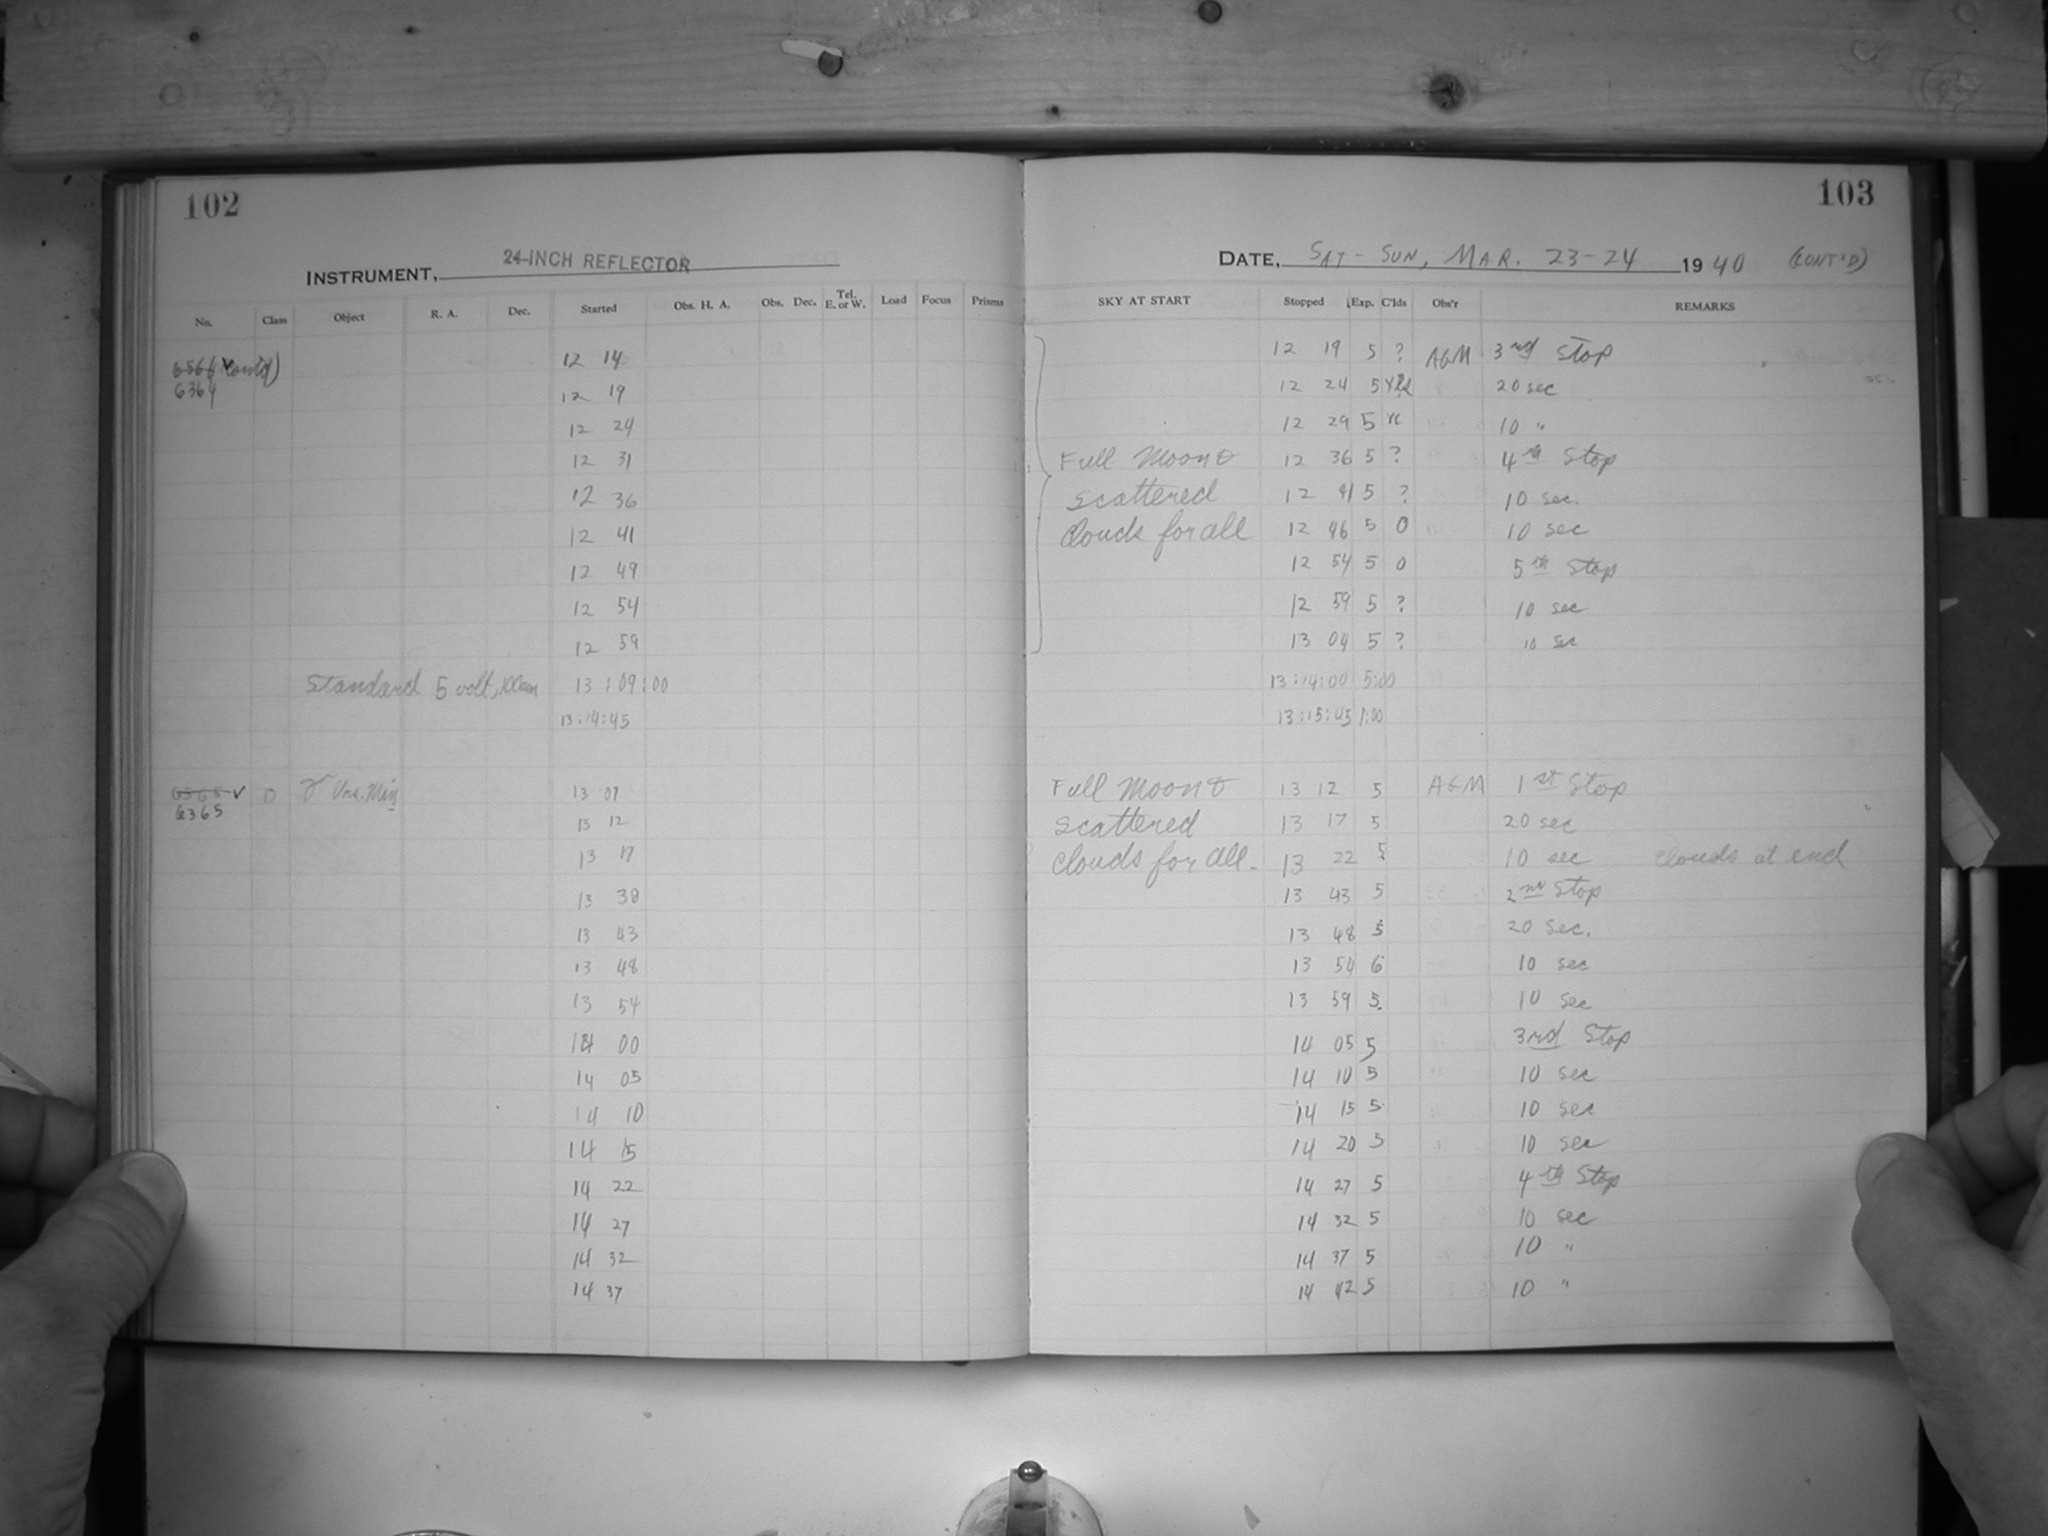 102
INSTRUMENT, 24-INCH REFLECTOR
No. Class Object R. A. Dec. Started Obs. H. A. Obs. Dec. Tel. E. or W. Load Focus Prisms
6566 (cont'd) 12 14
6364 12 19
12 24
12 31
12 36
12 41
12 49
12 54
12 59
Standard 5 volt, 100cm 13:09:00
13:14:45
6565 D γ Urs. Min 13 07
6365 13 12
13 17
13 38
13 43
13 48
13 54
14 00
14 05
14 10
14 15
14 22
14 27
14 32
14 37
103
DATE, SAT - SUN, MAR. 23-24 1940 (CONT'D)
SKY AT START Stopped Exp. C'lds Obs'r REMARKS
12 19 5 ? AGM 3rd Stop
12 24 5 20 sec
12 29 5 10 "
Full Moon & 12 36 5 ? 4th Stop
scattered 12 41 5 ? 10 sec.
clouds for all 12 46 5 0 10 sec
12 54 5 0 5th Stop
12 59 5 ? 10 sec
13 04 5 ? 10 sec
13:14:00 5:00
13:15:45 1:00
Full Moon & 13 12 5 AGM 1st Stop
scattered 13 17 5 20 sec
clouds for all. 13 22 5 10 sec clouds at end
13 43 5 2nd Stop
13 48 5 20 sec.
13 54 6 10 sec
13 59 5 10 sec
14 05 5 3rd Stop
14 10 5 10 sec
14 15 5 10 sec
14 20 5 10 sec
14 27 5 4th Stop
14 32 5 10 sec
14 37 5 10 "
14 42 5 10 "